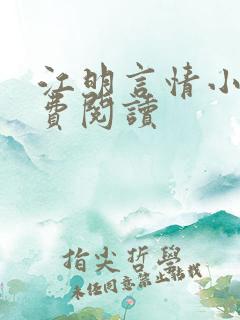 江明言情小
費閱讀
指尖哲學
未经同意禁止转载